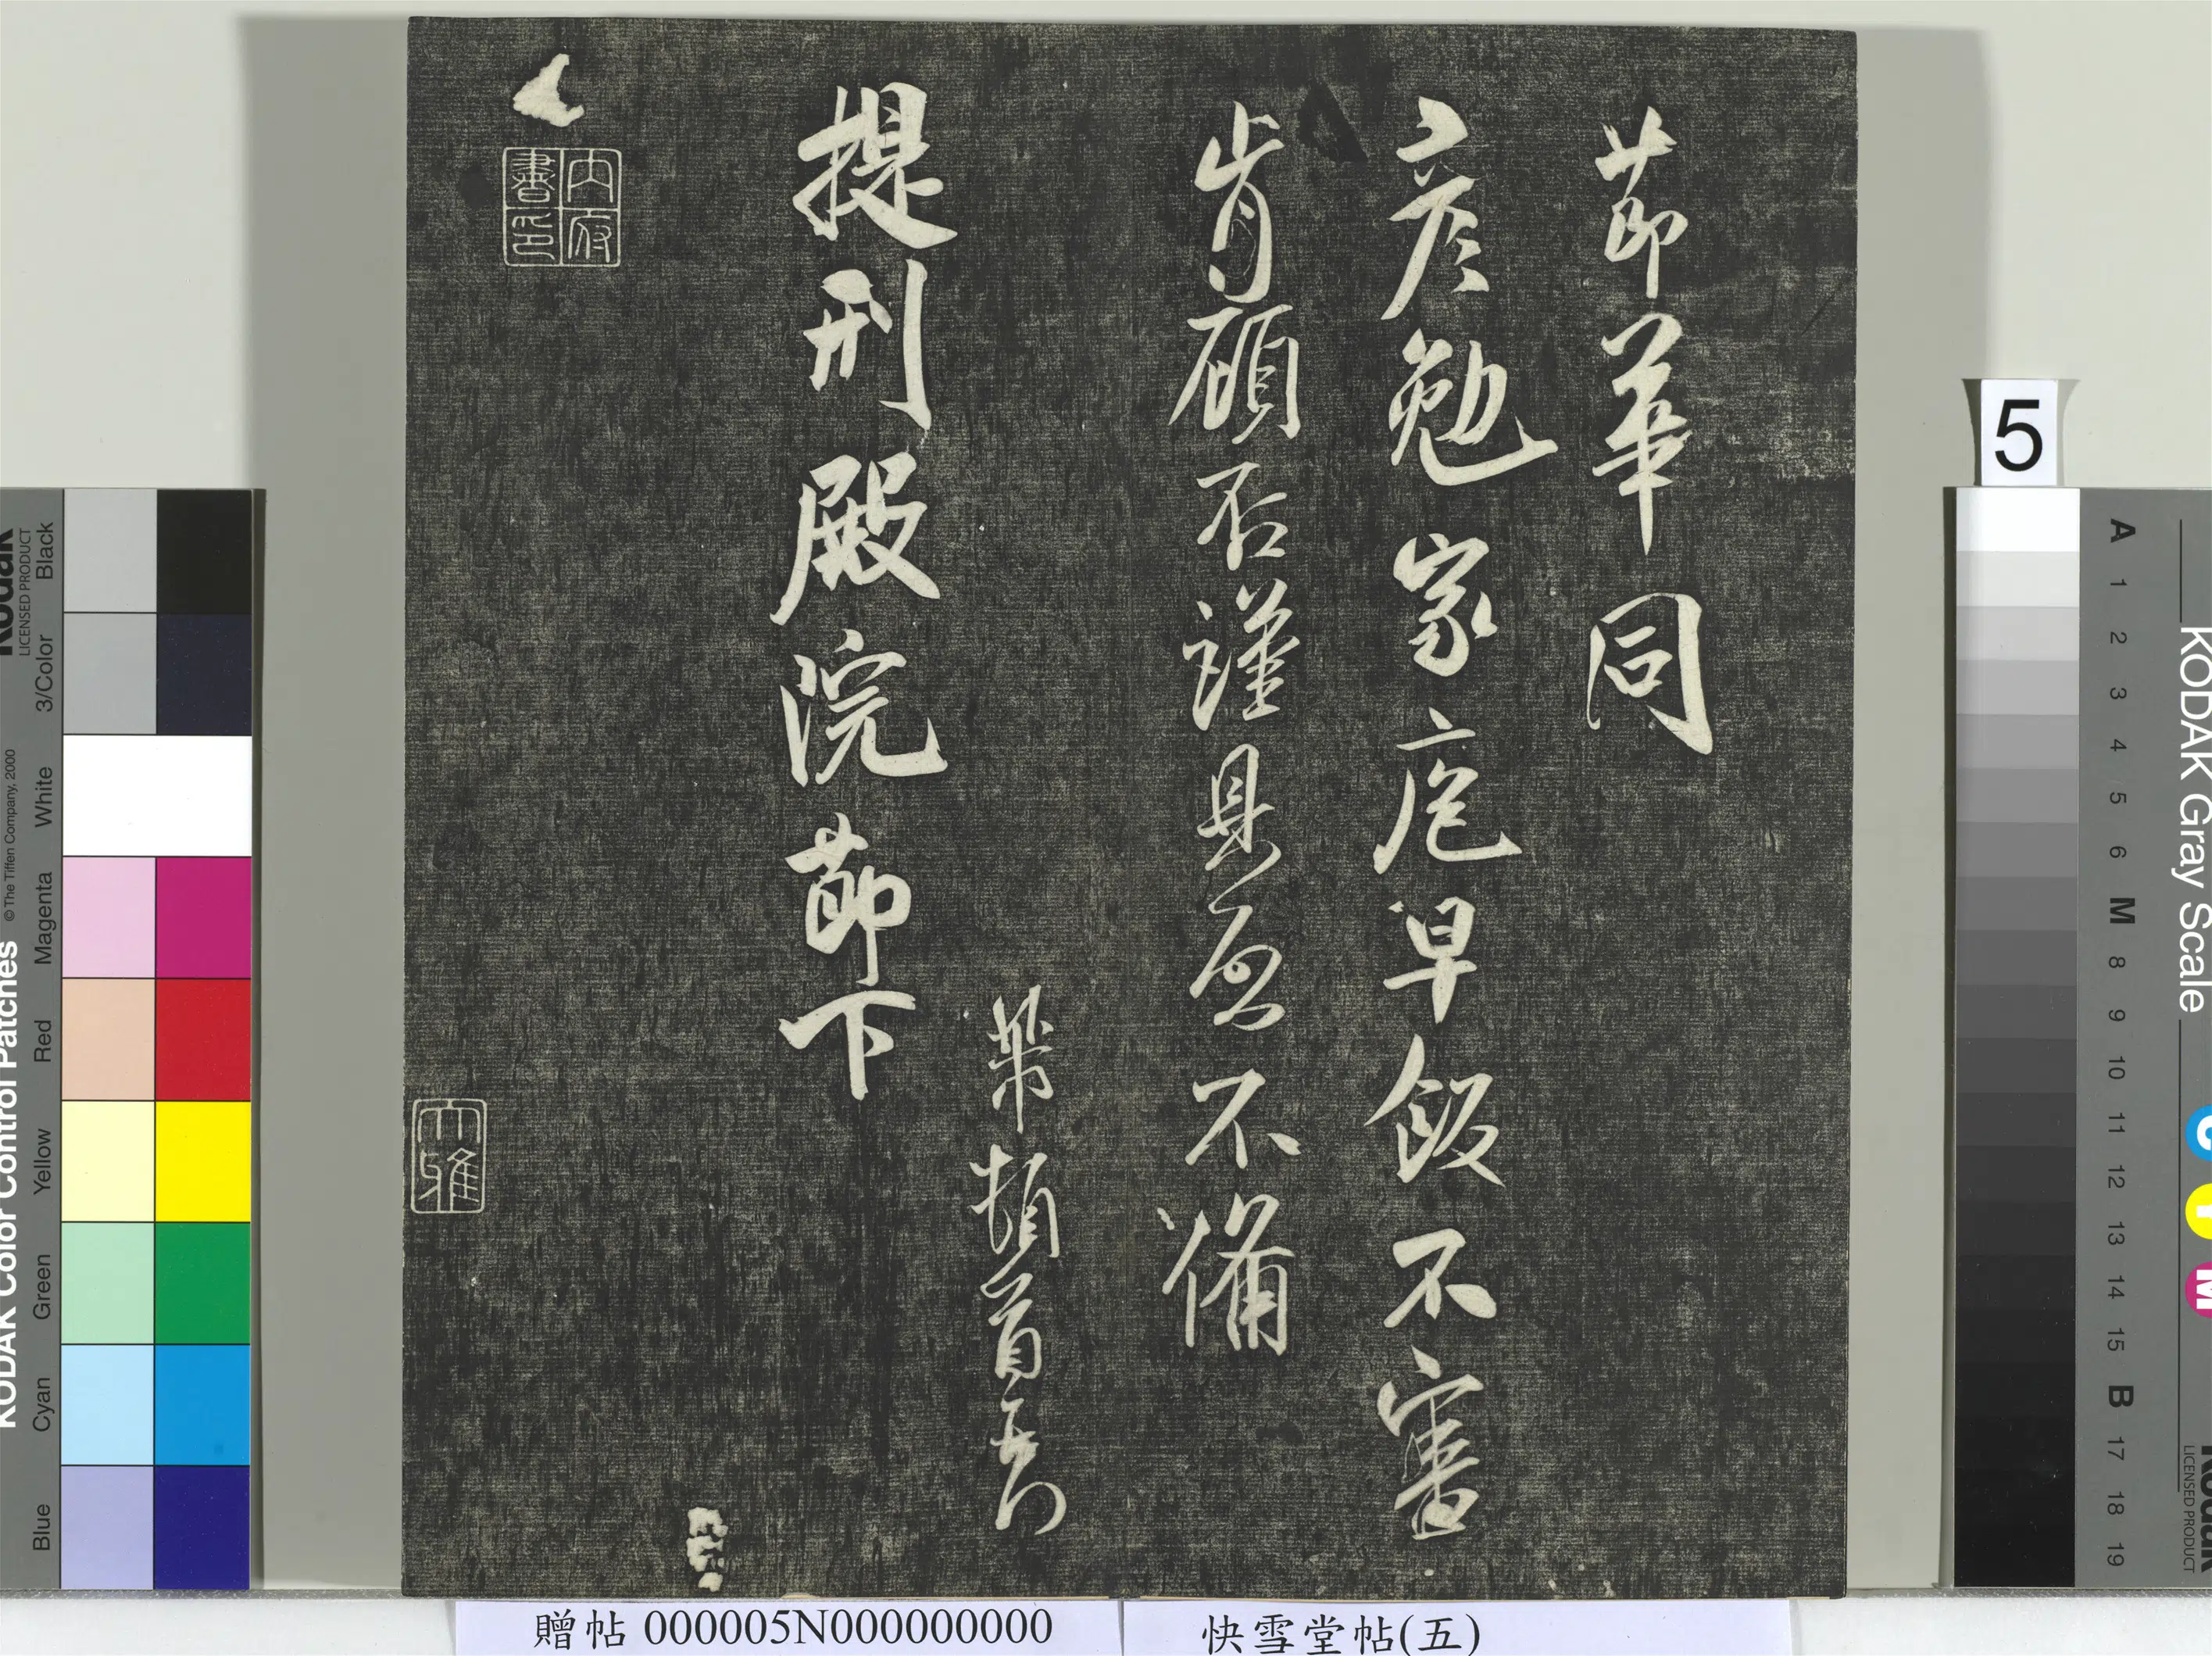 節華同
彥勉家庖早飯不審
肯顧否謹具啟不備
頓首再拜
提刑殿院節下
內府書印
大雅
5
贈帖 000005N000000000
快雪堂帖(五)
KODAK Color Control Patches
© The Tiffen Company, 2000
Kodak
LICENSED PRODUCT
Blue
Cyan
Green
Yellow
Red
Magenta
White
3/Color
Black
KODAK Gray Scale
Kodak
LICENSED PRODUCT
C
Y
M
A
1
2
3
4
5
6
M
8
9
10
11
12
13
14
15
B
17
18
19